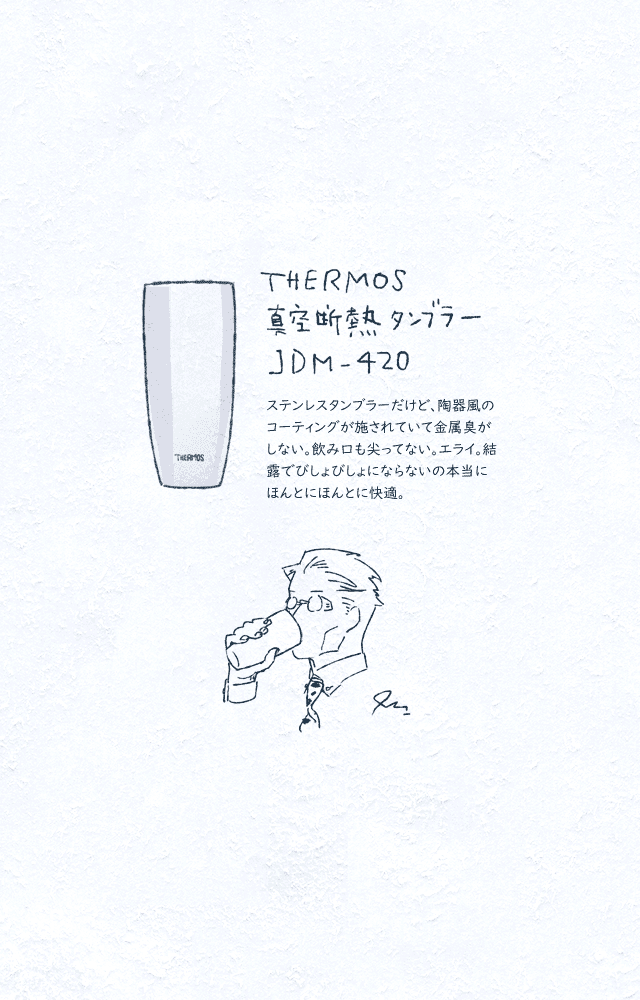 THERMOS
真空断熱タンブラー
JDM-420
ステンレスタンブラーだけど、陶器風の
コーティングが施されていて金属臭が
しない。飲み口も尖ってない。エライ。結
露でびしょびしょにならないの本当に
ほんとにほんとに快適。
THERMOS